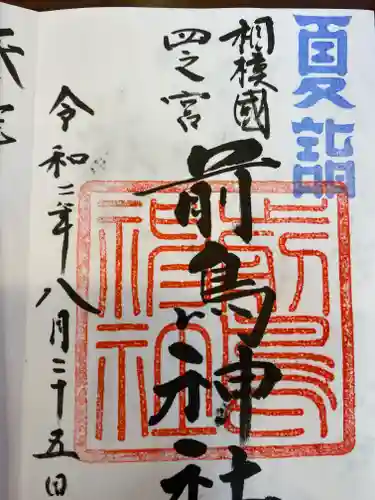 夏詣
相模國
四之宮
前鳥神社
前鳥神社
令和二年八月二十五日